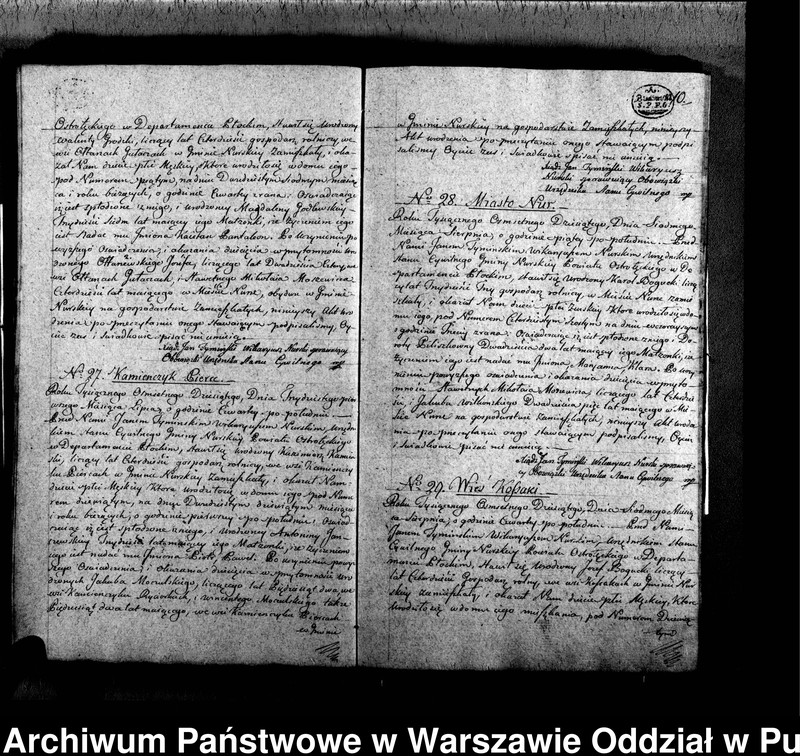 Ostrołęckiego w Departamencie Płockim, stawił się Urodzony
Walenty Godlewski, liczący lat Czterdzieści gospodarz rolniczy, we
wsi Ołtarzach Gutarzach w Gminie Nurskiej Zamieszkały, i oka-
zał Nam dziecię płci Męskiej, które urodziło się w domu iego
pod Numerem piątym, na dniu Dwudziestym Siódmym miesią-
ca i roku bieżących, o godzinie Czwartey z rana. Oświadczaiąc
iż iest spłodzone z niego, i Urodzoney Magdaleny
Trzydzieści Siedm lat maiącey iego Małżonki, i że życzeniem iego
iest nadać mu Imiona Kaietan Pantaleon. Po uczynieniu po-
wyższego Oświadczenia i okazaniu dziecięcia w przytomności Uro-
dzonego Ołtarzewskiego Józefa, liczącego lat Dwadzieścia Cztery, we
wsi Ołtarzach Gutarzach, i Sławetnego Mikołaia
Czterdzieści lat maiącego w Mieście Nurze, obydwu w Gminie
Nurskiey na gospodarstwie Zamieszkałych, ninieyszy Akt Uro-
dzenia po przeczytaniu onego Stawaiącym podpisaliśmy, Oy-
ciec zaś i Świadkowie pisać nie umieią.
Xiądz Jan Tymiński Wikaryusz Nurski sprawuiący
Obowiązki Urzędnika Stanu Cywilnego mp
No 27. Kamieńczyk Pierce.
Roku Tysiącznego Osmsetnego Dziesiątego, Dnia Trzydziestego pierw-
szego Miesiąca Lipca, o godzinie Czwartey po południu.
Przed Nami Janem Tymińskim Wikaryuszem Nurskim, Urzędni-
kiem Stanu Cywilnego Gminy Nurskiey Powiatu Ostrołęckiego
w Departamencie Płockim, stawił się Urodzony Kazimierz Kamiń-
ski, liczący lat Czterdzieści gospodarz rolniczy, we wsi Kamieńczy-
ku Piercach w Gminie Nurskiey zamieszkały, i okazał Nam
dziecię płci Męskiey które urodziło się w domu iego pod Nume-
rem dziewiątym, na dniu Dwudziestym dziewiątym miesiąca
i roku bieżących, o godzinie pierwszey po południu, Oświad-
czaiąc iż iest spłodzone z niego, i Urodzoney Antoniny Jan-
czewskiey Trzydzieści lat maiącey iego Małżonki, i że życzeniem
iego iest nadać mu Imiona Piotr Paweł. Po uczynieniu powyż-
szego Oświadczenia i okazaniu dziecięcia w przytomności Uro-
dzonych Jakuba Moczulskiego, liczącego lat Pięćdziesiąt dwa, we
wsi Kamieńczyku Ryciorkach, i Wincentego Moczulskiego także
Pięćdziesiąt dwa lat maiącego, we wsi Kamieńczyku Piercach
w Gminie
10.
w Gminie Nurskiey na gospodarstwie Zamieszkałych, ninieyszy
Akt urodzenia po przeczytaniu onego Stawaiącym podpi-
saliśmy, Oyciec zaś i Świadkowie pisać nie umieią.
Xiądz Jan Tymiński Wikaryusz
Nurski sprawuiący Obowiązki
Urzędnika Stanu Cywilnego mp
No 28. Miasto Nur.
Roku Tysiącznego Osmsetnego Dziesiątego, Dnia Siódmego
Miesiąca Sierpnia, o godzinie piątey po południu. Przed
Nami Janem Tymińskim Wikaryuszem Nurskim, Urzędnikiem
Stanu Cywilnego Gminy Nurskiey Powiatu Ostrołęckiego w De-
partamencie Płockim, stawił się Urodzony Karol Bogucki liczą-
cy lat Trzydzieści Trzy gospodarz rolniczy, w Mieście Nurze zamie-
szkały, i okazał Nam dziecię płci Żeńskiey które urodziło się w do-
mu iego, pod Numerem Czterdziestym Szóstym na dniu wczorayszym
o godzinie Trzeciey z rana. Oświadczaiąc iż iest spłodzone z niego, i Do-
roty Dwadzieścia dwa lat maiącey iego Małżonki, i że
życzeniem iego iest nadać mu Imiona Maryanna Klara. Po uczy-
nieniu powyższego oświadczenia i okazania dziecięcia w przyto-
mności Sławetnych Mikołaia liczącego lat Czterdzie-
ści, i Jakuba Dwadzieścia pięć lat maiącego w Mie-
ście Nurze na gospodarstwie Zamieszkałych, ninieyszy Akt urodze-
nia po przeczytaniu onego Stawaiącym podpisaliśmy, Oyciec
i Świadkowie pisać nie umieią.
Xiądz Jan Tymiński Wikaryusz Nurski sprawuią-
cy Obowiązki Urzędnika Stanu Cywilnego mp
No 29. Wieś Kossaki
Roku Tysiącznego Osmsetnego Dziesiątego, Dnia Siódmego Miesią-
ca Sierpnia, o godzinie Czwartey po południu. Przed Nami
Janem Tymińskim Wikaryuszem Nurskim, Urzędnikiem Stanu
Cywilnego Gminy Nurskiey Powiatu Ostrołęckiego w Departa-
mencie Płockim, stawił się Urodzony Józef Bogucki liczący
lat Czterdzieści Gospodarz rolny, we wsi Kossakach w Gminie Nur-
skiey zamieszkały, i okazał Nam dziecię płci Męskiey, Które
urodziło się w domu iego mieszkania, pod Numerem Dziewią-
tym
Archiwum Państwowe w Warszawie Oddział w Pu